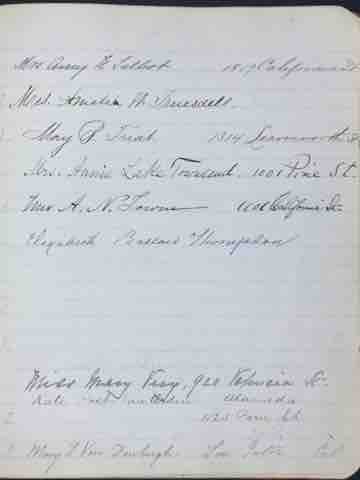 Mrs. Avery H. Talbot 1819 California St
Mrs. Amelia W. Truesdell
Mary P. Treat 1314 Leavenworth St
Mrs. Annie Lake Townsend. 1001 Pine St.
Mrs. A. N. Towne 1101 California St.
Elizabeth Thompson
Miss Mary 920 Valencia St.
Kate Alameda
1123 St.
Mary L Van Los Gatos Cal